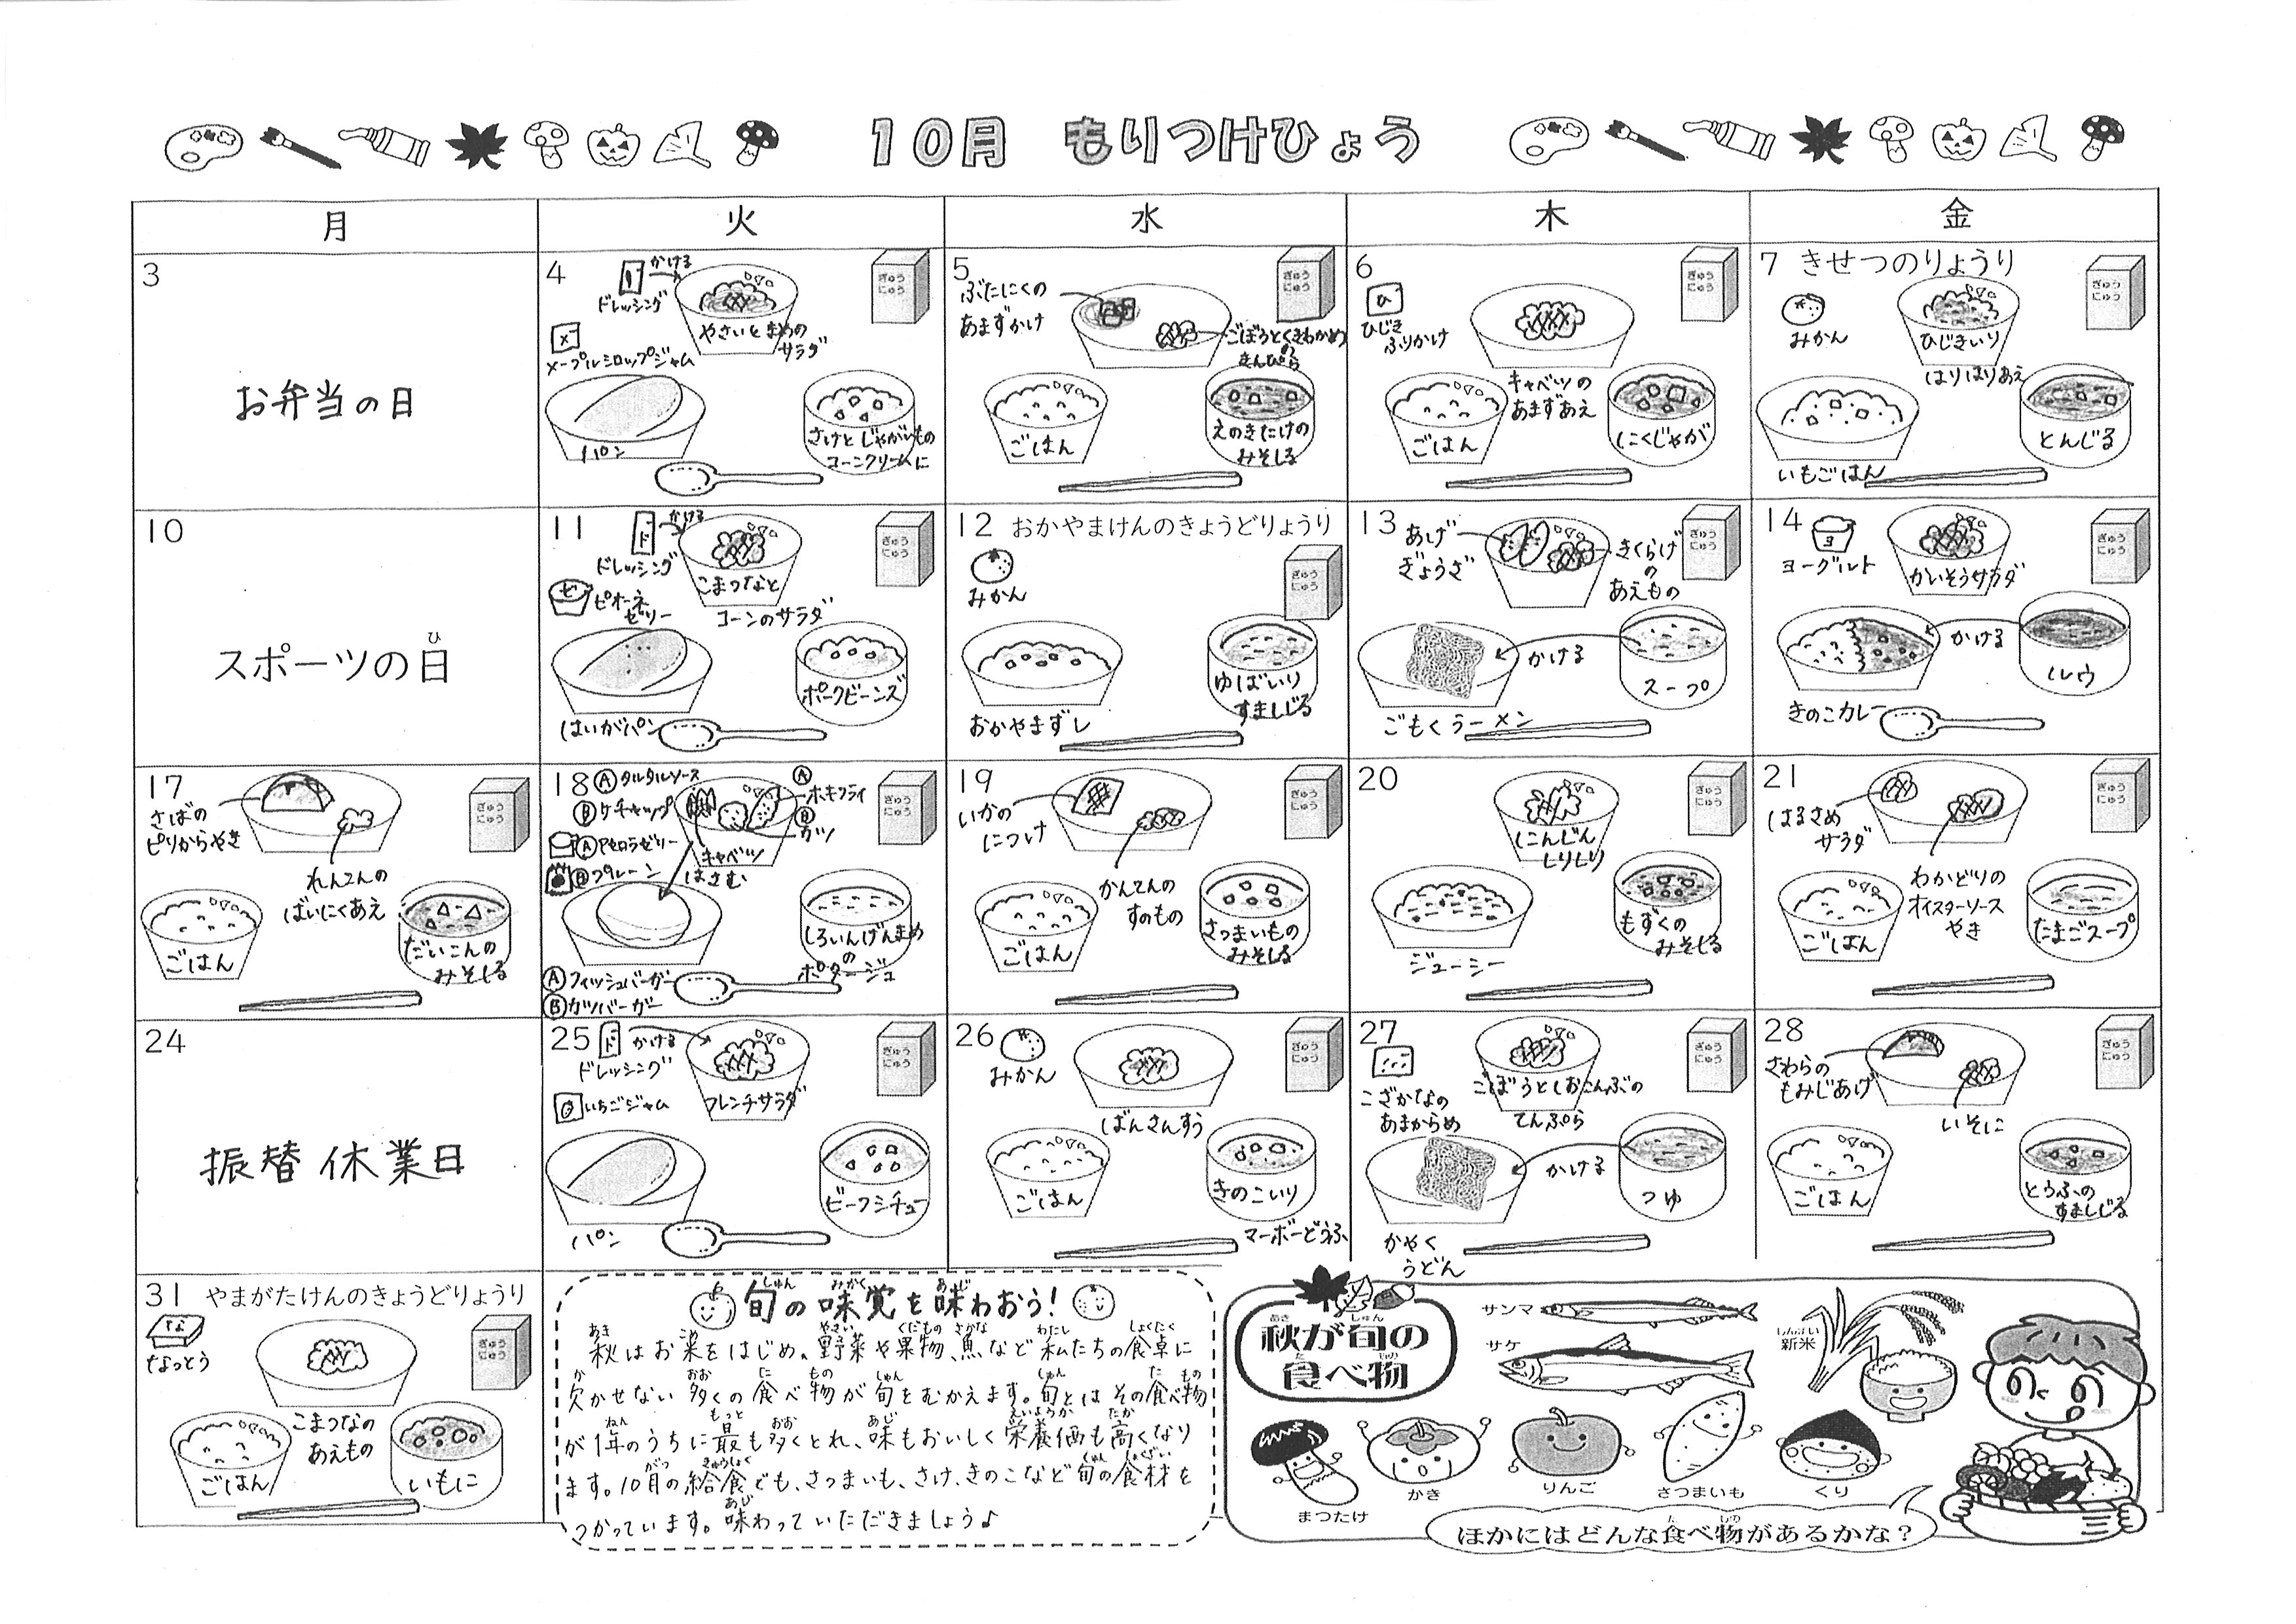 10月 もりつけひょう
月 火 水 木 金
3
お弁当の日
4
かける
ドレッシング
やさいとまめの
サラダ
ぎゅう
にゅう
メープルシロップジャム
パン
さけとじゃがいもの
コーンクリームに
5
ぶたにくの
あまずかけ
ぎゅう
にゅう
ごぼうとくきわかめ
の
きんぴら
ごはん
えのきたけの
みそしる
6
ひじき
ふりかけ
ぎゅう
にゅう
キャベツの
あまずあえ
ごはん
にくじゃが
7 きせつのりょうり
みかん
ひじきいり
はりはりあえ
ぎゅう
にゅう
いもごはん
とんじる
10
スポーツの日
ひ
11
かける
ド
ドレッシング
こまつなと
コーンのサラダ
ぎゅう
にゅう
ゼ
ピオーネ
ゼリー
はいがパン
ポークビーンズ
12 おかやまけんのきょうどりょうり
みかん
ぎゅう
にゅう
おかやまずし
ゆばいり
すましじる
13
あげ
ぎょうざ
きくらげ
の
あえもの
ぎゅう
にゅう
かける
スープ
ごもくラーメン
14
ヨ
ヨーグルト
かいそうサラダ
ぎゅう
にゅう
かける
ルウ
きのこカレー
17
さばの
ピリからやき
ぎゅう
にゅう
れんこんの
ばいにくあえ
ごはん
だいこんの
みそしる
18
Ⓐタルタルソース
Ⓑケチャップ
Ⓐアセロラゼリー
Ⓑプレーン
Ⓐ
ホキフライ
Ⓑ
カツ
キャベツ
はさむ
ぎゅう
にゅう
しろいんげんまめ
の
ポタージュ
Ⓐフィッシュバーガー
Ⓑカツバーガー
19
いかの
につけ
ぎゅう
にゅう
かんてんの
すのもの
ごはん
さつまいもの
みそしる
20
にんじん
しりしり
ぎゅう
にゅう
ジューシー
もずくの
みそしる
21
はるさめ
サラダ
ぎゅう
にゅう
わかどりの
オイスターソース
やき
ごはん
たまごスープ
24
振替休業日
25
ド
かける
ドレッシング
フレンチサラダ
ぎゅう
にゅう
いちごジャム
パン
ビーフシチュー
26
みかん
ばんさんすう
ぎゅう
にゅう
ごはん
きのこいり
マーボーどうふ
27
こざかなの
あまからめ
ごぼうとしおこんぶの
てんぷら
ぎゅう
にゅう
かける
つゆ
かやく
うどん
28
さわらの
もみじあげ
いそに
ぎゅう
にゅう
ごはん
とうふの
すましじる
31 やまがたけんのきょうどりょうり
な
なっとう
ぎゅう
にゅう
こまつなの
あえもの
ごはん
いもに
しゅん みかく あじ
旬の味覚を味わおう!
あき こめ やさい くだもの さかな わたし しょくたく
秋はお米をはじめ、野菜や果物、魚など私たちの食卓に
か おお た もの しゅん しゅん た もの
欠かせない多くの食べ物が旬をむかえます。旬とはその食べ物
ねん もっと おお あじ えいようか たか
が1年のうちに最も多くとれ、味もおいしく栄養価も高くなり
がつ きゅうしょく しゅん しょくざい
ます。10月の給食でも、さつまいも、さけ、きのこなど旬の食材を
あじ
つかっています。味わっていただきましょう♪
あき しゅん
秋が旬の
た もの
食べ物
サンマ
サケ
しんまい
新米
まつたけ
かき
りんご
さつまいも
くり
た もの
ほかにはどんな食べ物があるかな？